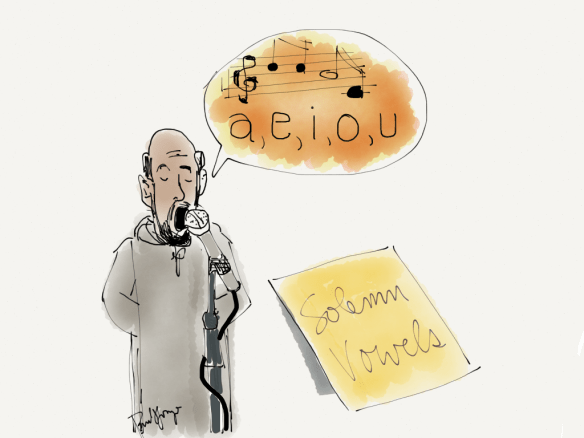 a, e, i, o, u
Solemn
Vowels